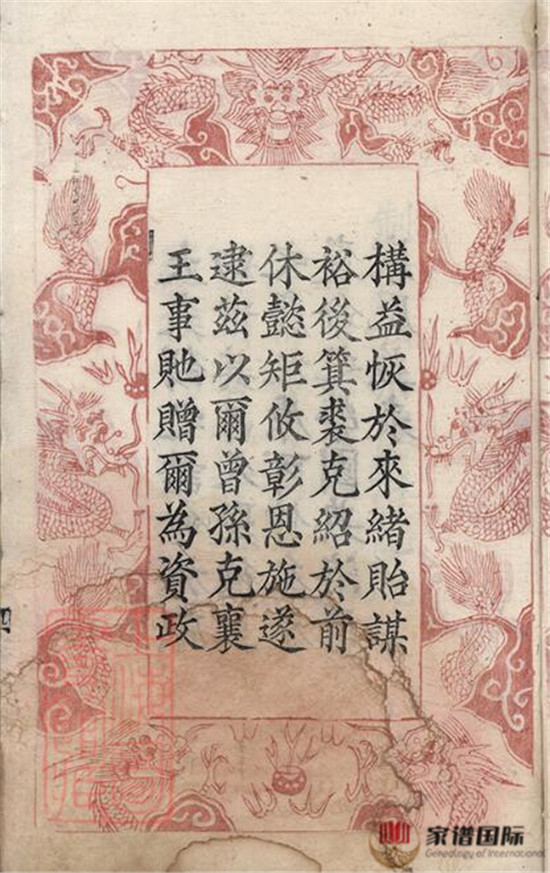 構益恢於來緒貽謀
裕後箕裘克紹於前
休懿矩攸彰恩施遂
逮茲以爾曾孫克襄
王事貤贈爾為資政
家谱国际
Genealogy of International